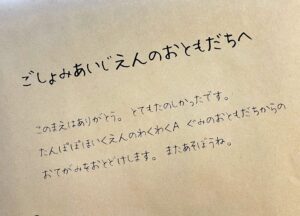 ごしょみあいじえんのおともだちへ
このまえはありがとう。 とてもたのしかったです。
たんぽぽほいくえんのわくわくA ぐみのおともだちからの
おてがみをおとどけします。 またあそぼうね。